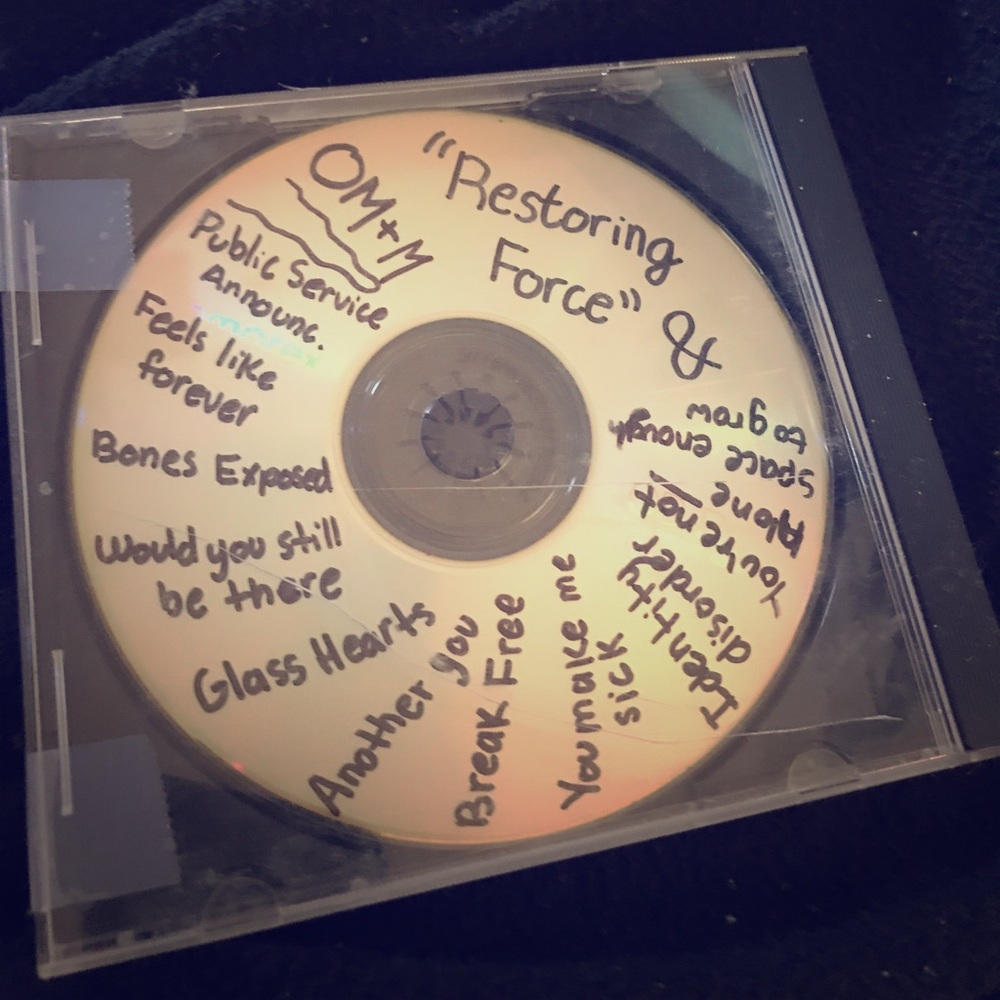 OM+M
"Restoring
Force" &
Public Service
Announc.
Feels like
forever
Bones Exposed
Would you still
be there
Glass Hearts
Another you
Break Free
You make me
sick
Identity
disorder
You're not
Alone
space enough
to grow